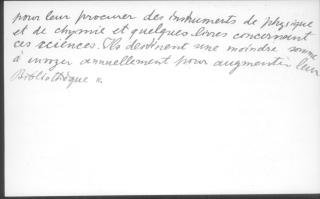 pour leur procurer des instruments de physique
et de chymie et quelques livres concernant
ces sciences. Ils destinent une moindre somme
à envoyer annuellement pour augmenter leur
Bibliothèque ".